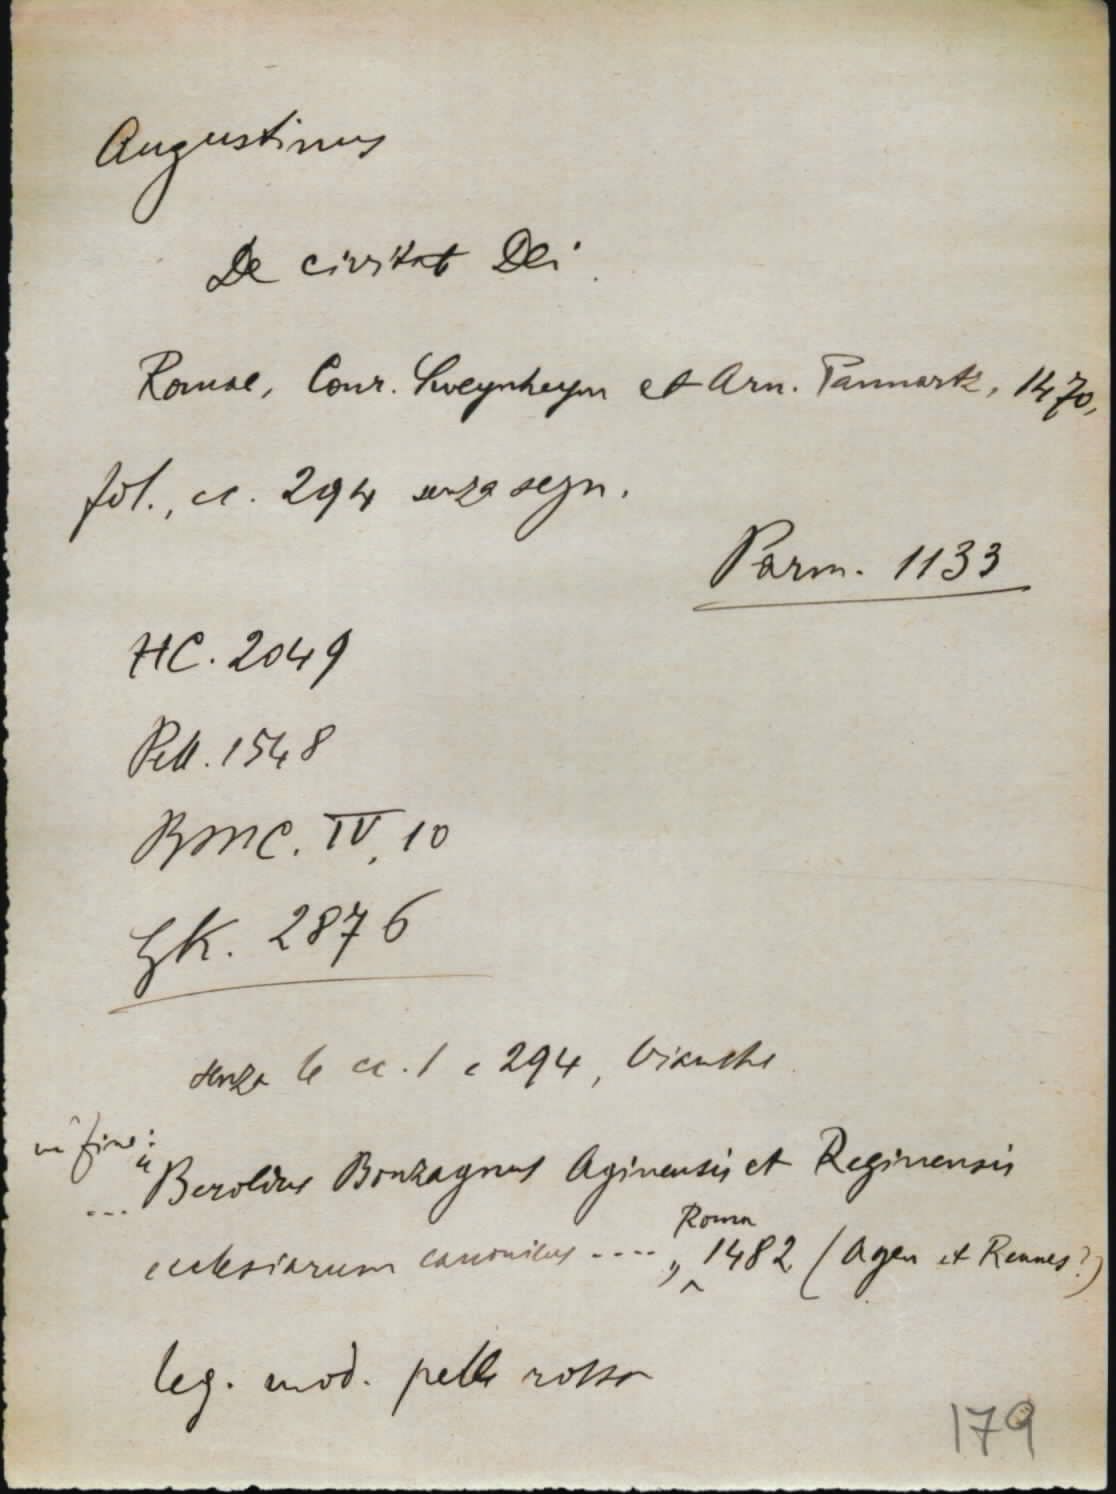 Augustinus
De civitat Dei.
Romae, Conr. Sweynheym et Arn. Pannartz, 1470,
fol., cc. 294 senza segn.
Parm. 1133
HC. 2049
Pell. 1548
BMC. IV, 10
GK. 2876
senza le cc. 1 e 294, bianche
in fine:
... "Beroldus Bonzagnus Aginensis et Reginensis
ecclesiarum canonicus ....„ Roma 1482 (Agen et Rennes?)
leg. mod. pelle rossa
179